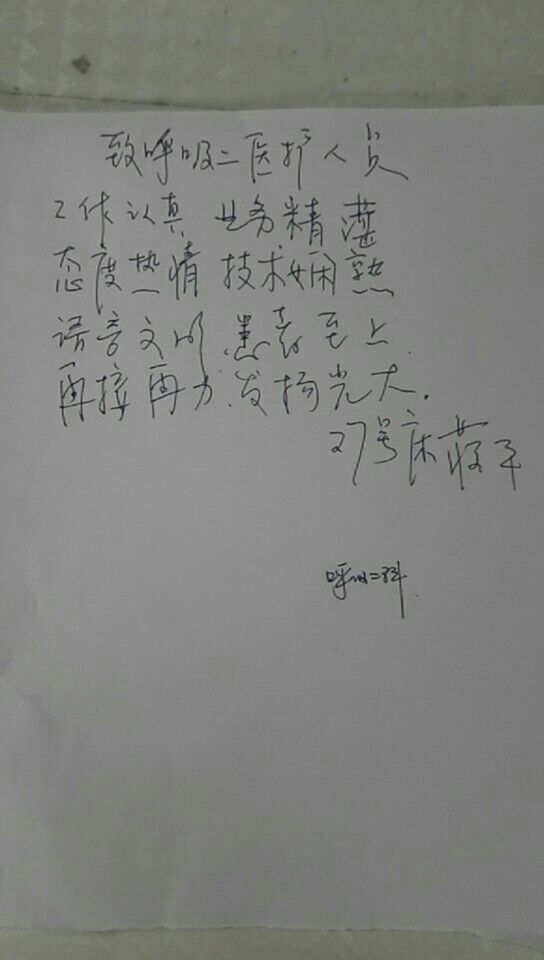 致呼吸二医护人员
工作认真 业务精湛
态度热情 技术娴熟
语言文明.患者至上.
再接再力.发扬光大.
27号床蒋平
呼吸二科.